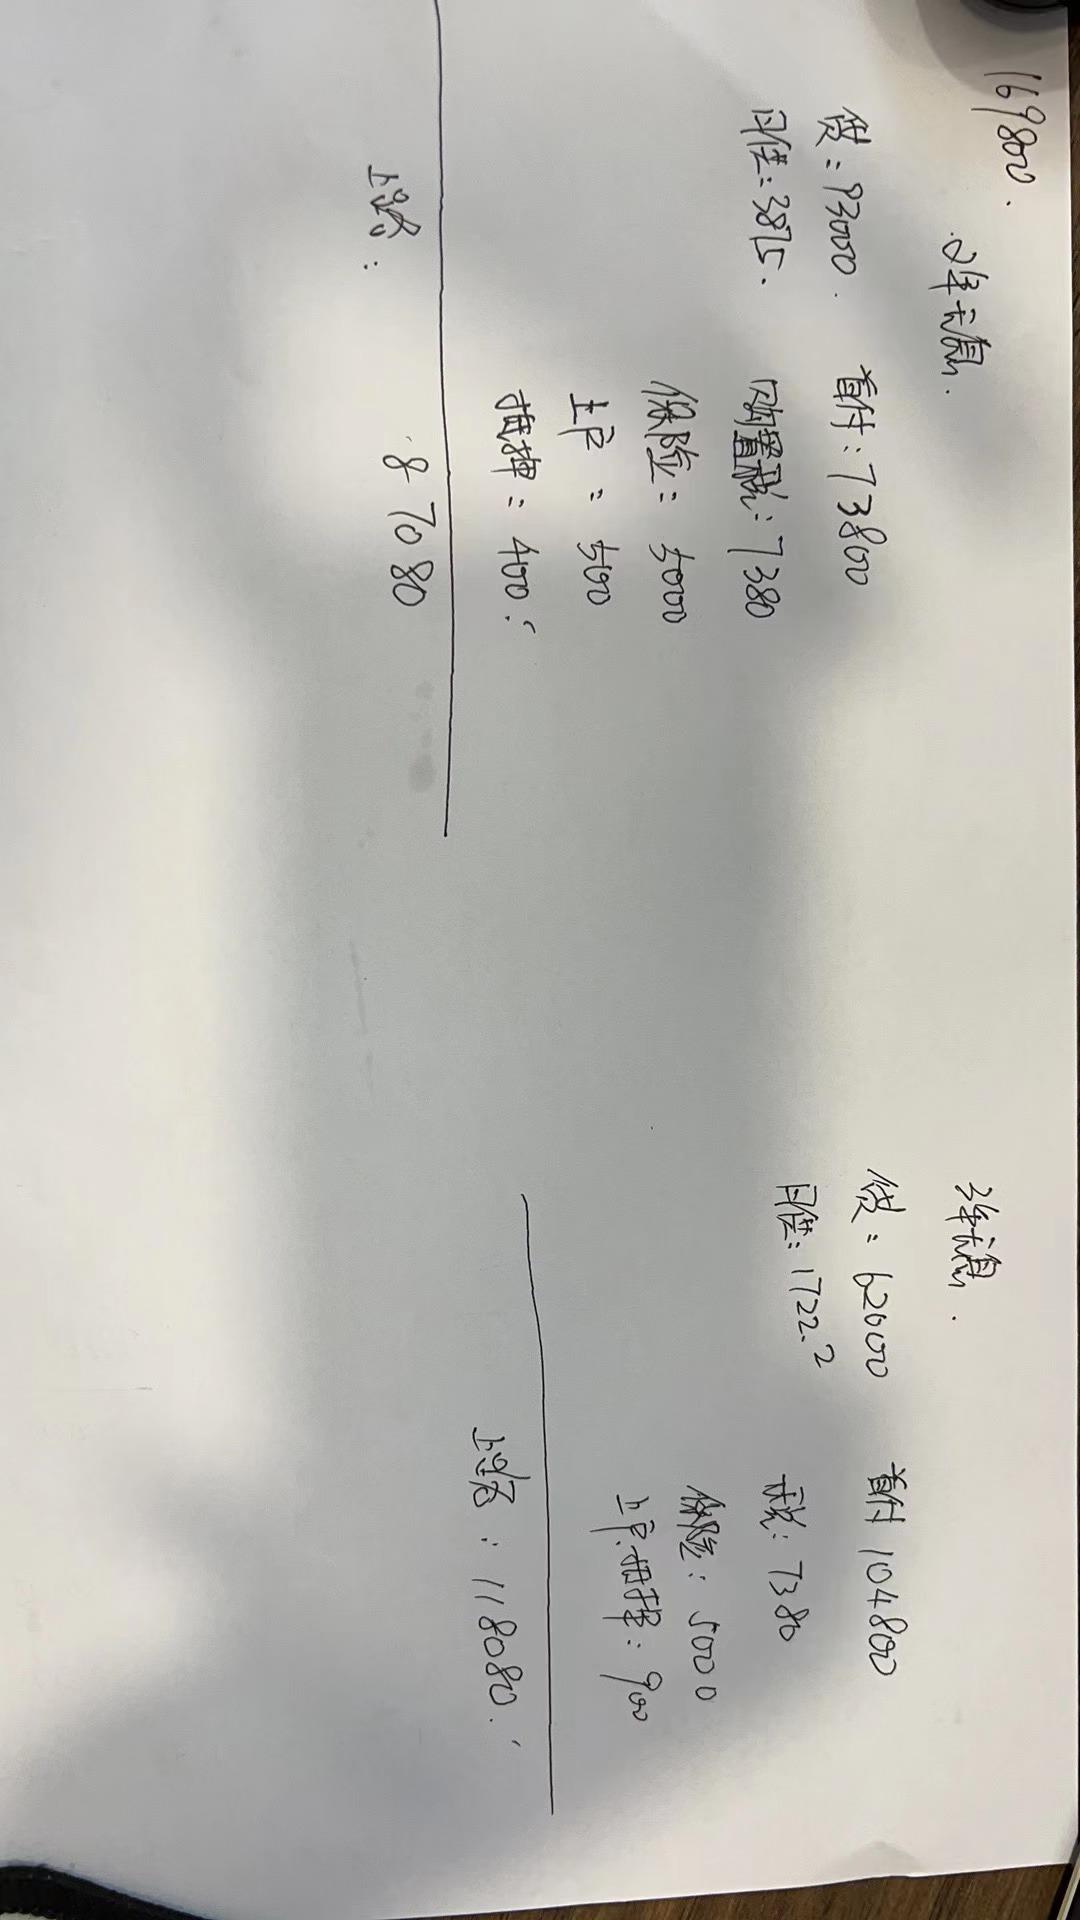 169800.
2年无息.
贷:93000. 首付:73800
月供:3875. 购置税:7380
保险:5000
上户:500
抵押:400.
上路: 87080
3年无息.
贷:62000 首付 104800
月供:1722.2 税:7380
保险:5000
上户.抵押:900
上路:118080.